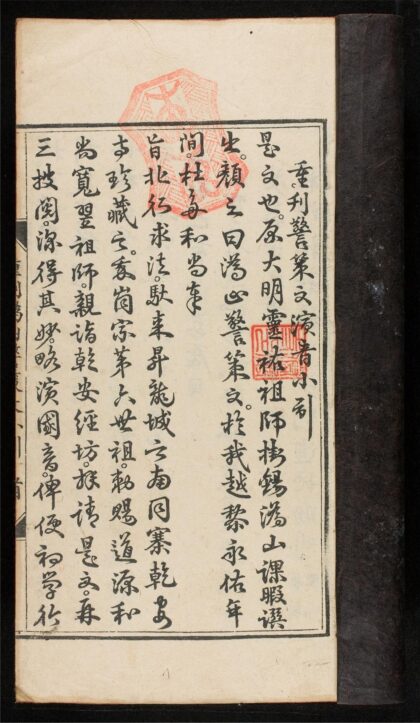 重刊警策文演音小引
是文也。原大明靈祐祖師掛錫潙山課暇譔
出。顏之曰潙山警策文。於我越黎永佑年
間。杜多和尚奉
旨北行求法。馱來昇龍城之南同寨乾安
寺珍藏之。爰崗宗第六世祖。勅賜道源和
尚寬翌祖師。親詣乾安經坊。拜請是文。再
三披閱。深得其妙。略演國音。俾便初學行
重刊潙山警策文小引